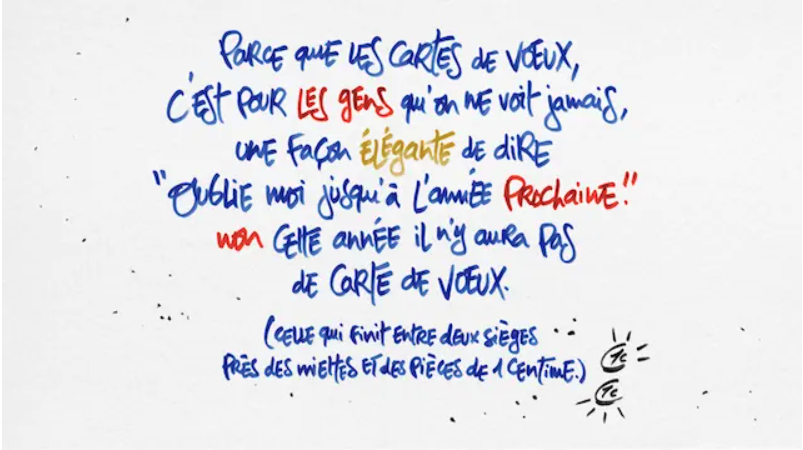 Parce que les cartes de vœux,
c'est pour les gens qu'on ne voit jamais,
une façon élégante de dire
"Oublie moi jusqu'à l'année prochaine!"
non cette année il n'y aura pas
de carte de vœux.
(celle qui finit entre deux sièges
près des miettes et des pièces de 1 centime.)
1c
1c